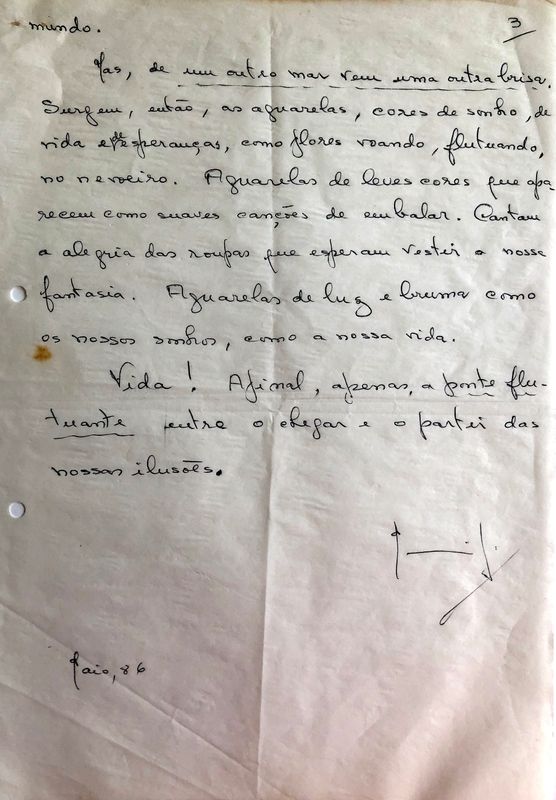 3
mundo.
Mas, de um outro mar vem uma outra brisa.
Surgem, então, as aguarelas, cores de sonho, de
vida e de esperanças, como flores voando, flutuando,
no nevoeiro. Aguarelas de leves cores que apa-
recem como suaves canções de embalar. Cantam
a alegria das roupas que esperam vestir a nossa
fantasia. Aguarelas de luz e bruma como
os nossos sonhos, como a nossa vida.
Vida! Afinal, apenas, a ponte flu-
tuante entre o chegar e o partir das
nossas ilusões.
Maio, 86